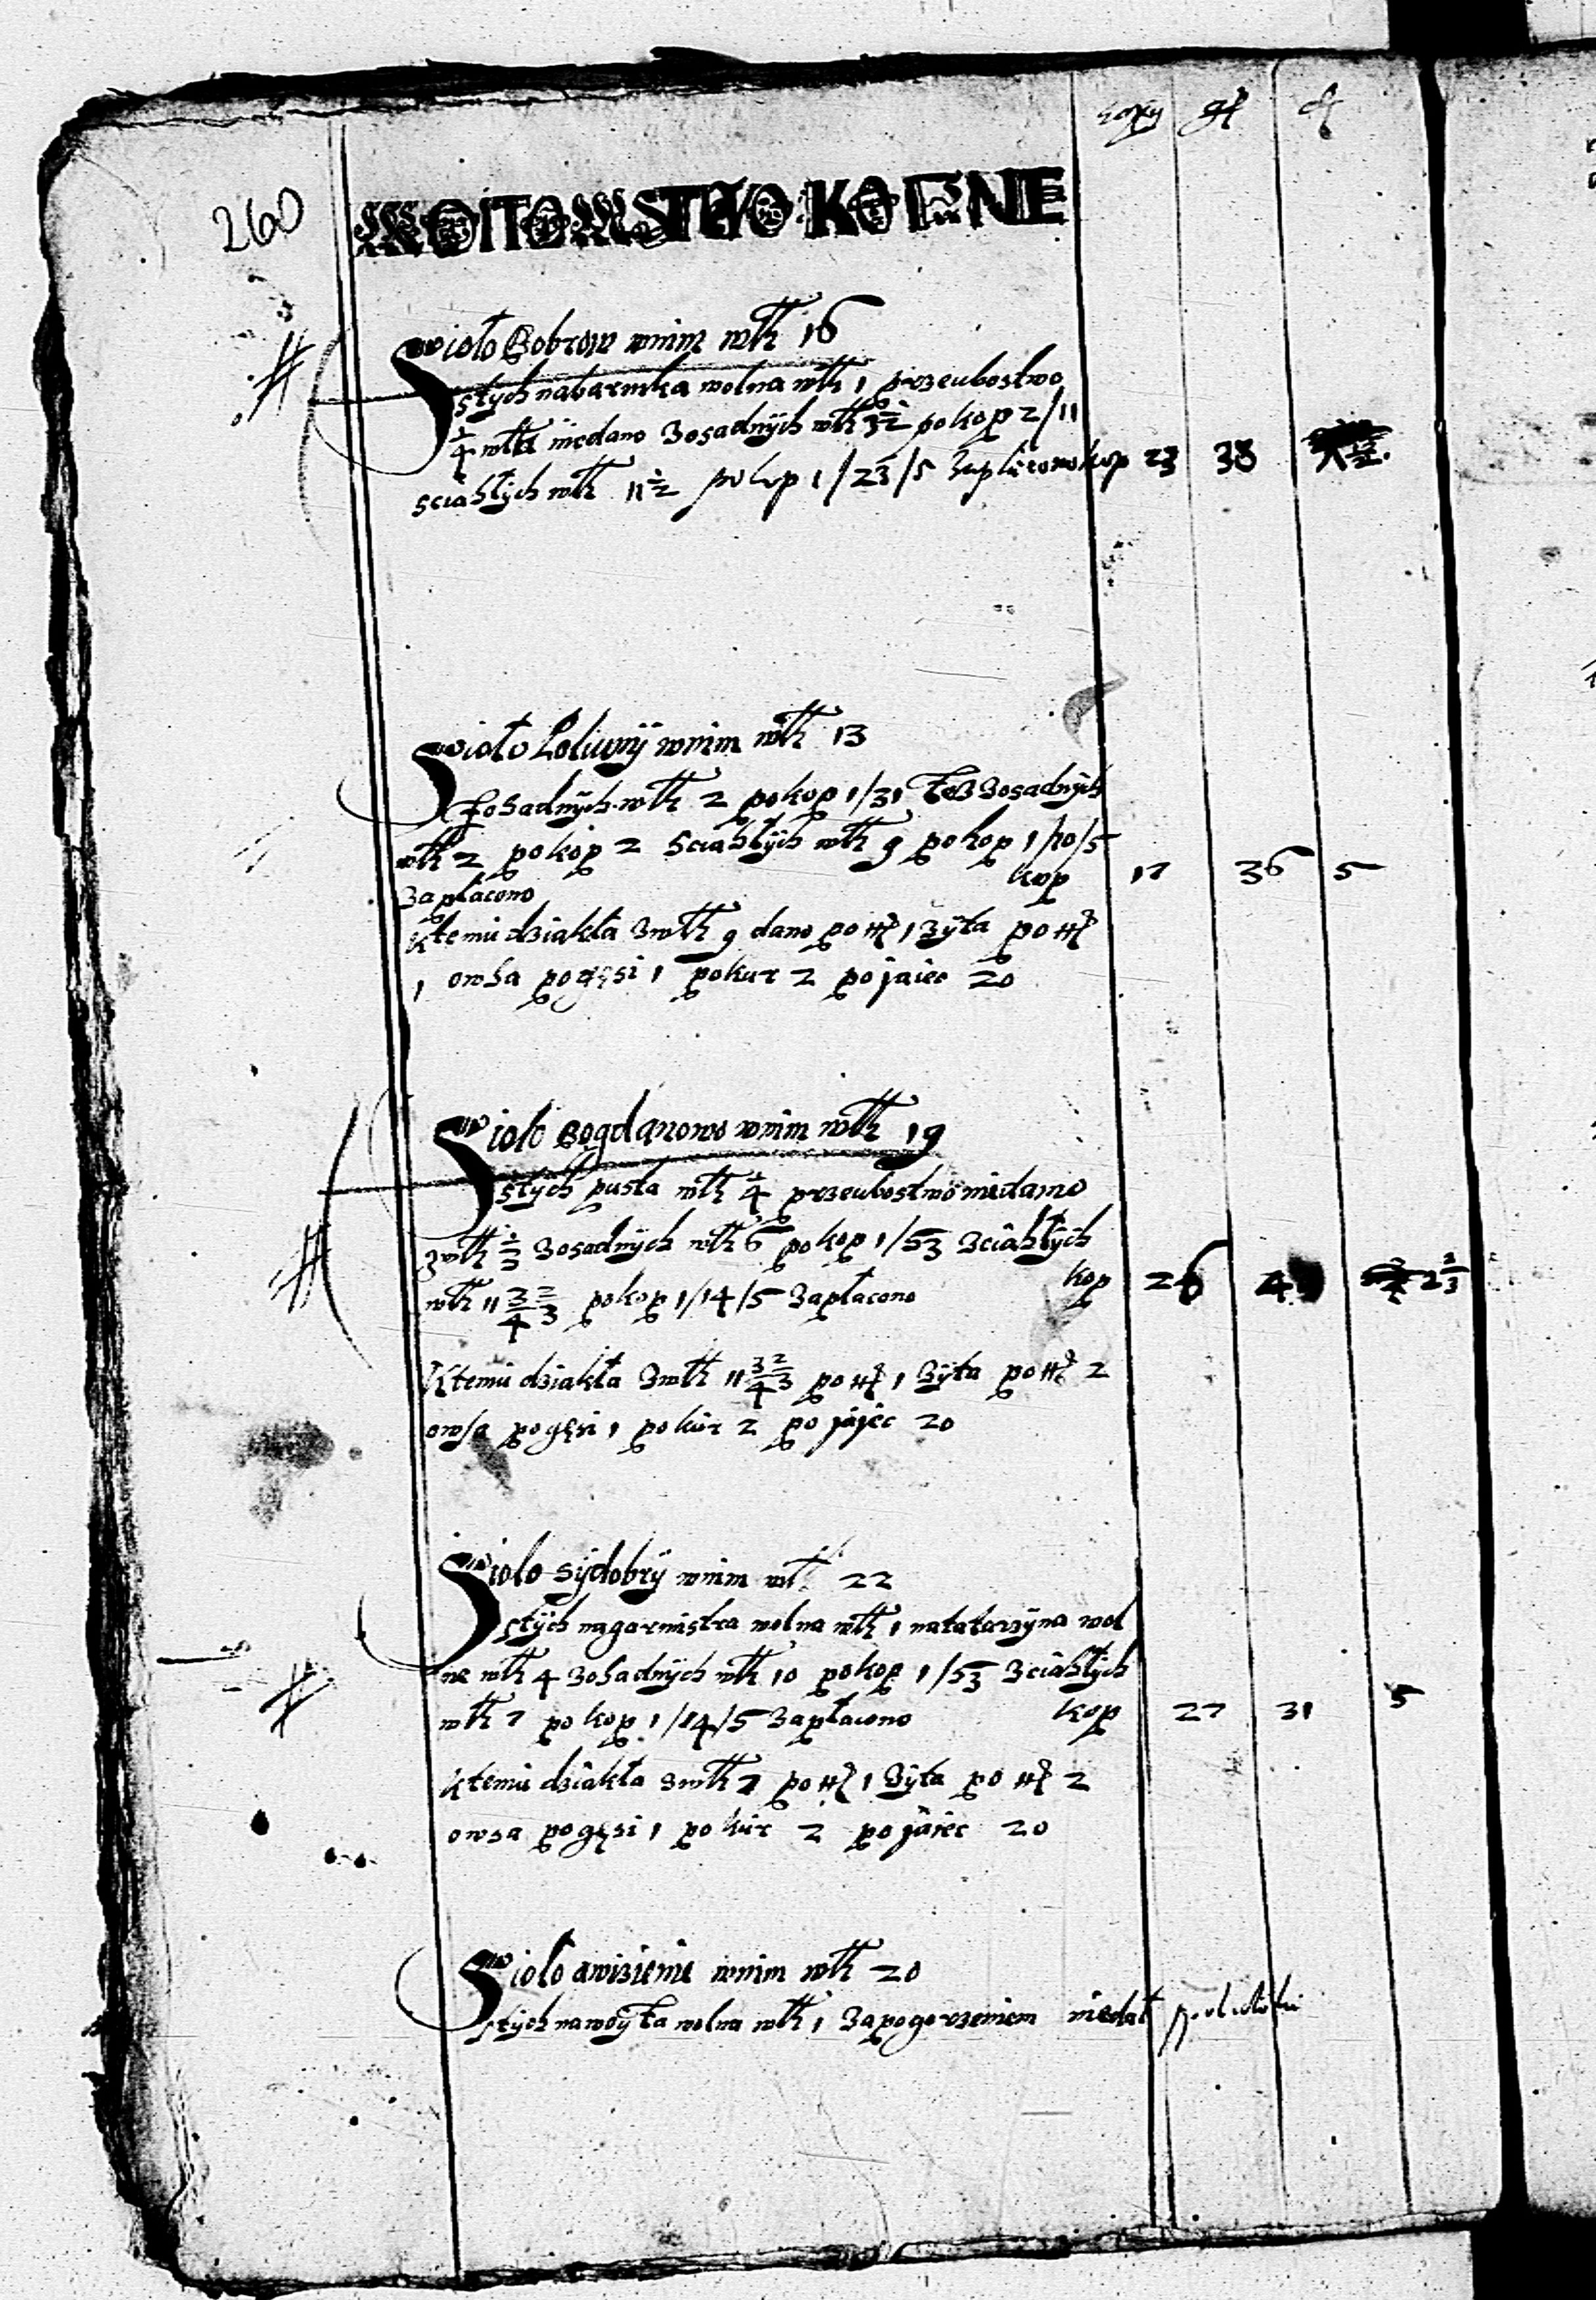 kopy gr d
260
WOITOWSTWO KOTNE
Sioło Bobrow wnim włk 16
stych nabarnika wolna włk 1 przeubostwo
1/4 włk niedano zosadnÿch włk 3 1/2 po kop 2/11
sciahłÿch włk 11 1/2 po kop 1/23/5 zapłacono kop 23 38
Sioło wnim włk 13
zosadnÿch włk 2 po kop 1/31 też zosadnÿch
włk 2 po kop 2 sciahłÿch włk 9 po kop 1/10/5
kop 17 36 5
zapłacono
ktemu dziakła zwłk 9 dano po 1 żÿta po
1 owsa po gęsi 1 po kur 2 po jaiec 20
Sioło Bogdanowo wnim włk 19
stÿch pusta włk 1/4 przeubostwo niedano
zwłk zosadnÿch włk 6 po kop 1/53 zciahłÿch
włk 11 3/4 2/3 po kop 1/14/5 zapłacono kop 26 2 2/3
ktemu dziakła zwłk 11 3/4 2/3 po 1 żÿta po 2
owsa po gęsi 1 po kur 2 po jajec 20
Sioło sÿdobrÿ wnim włk 22
stÿch nagarnistra wolna włk 1 natatarzÿna wol
ne włk 4 zosadnÿch włk 10 po kop 1/53 zciahłÿch
włk 7 po kop 1/14/5 zapłacono kop 27 31 5
ktemu dziakła zwłk 7 po 1 żÿta po 2
owsa po gęsi 1 po kur 2 po jaiec 20
Sioło awizienie wnim włk 20
stÿch nawoÿta wolna włk 1 zapogorzeniem niedał